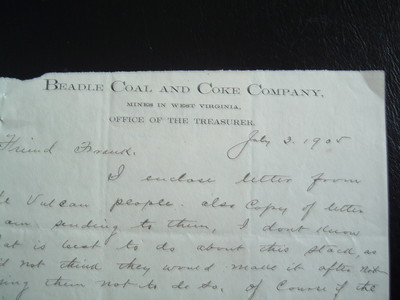 BEADLE COAL AND COKE COMPANY,
MINES IN WEST VIRGINIA,
OFFICE OF THE TREASURER.
July 3. 1905
Friend Freund.
I enclose letter from
Vulcan people. also Copy of letter
am sending to them, I dont know
what is best to do about this stock, as
did not think they would make it after not-
ing them not to do so, of Course if the